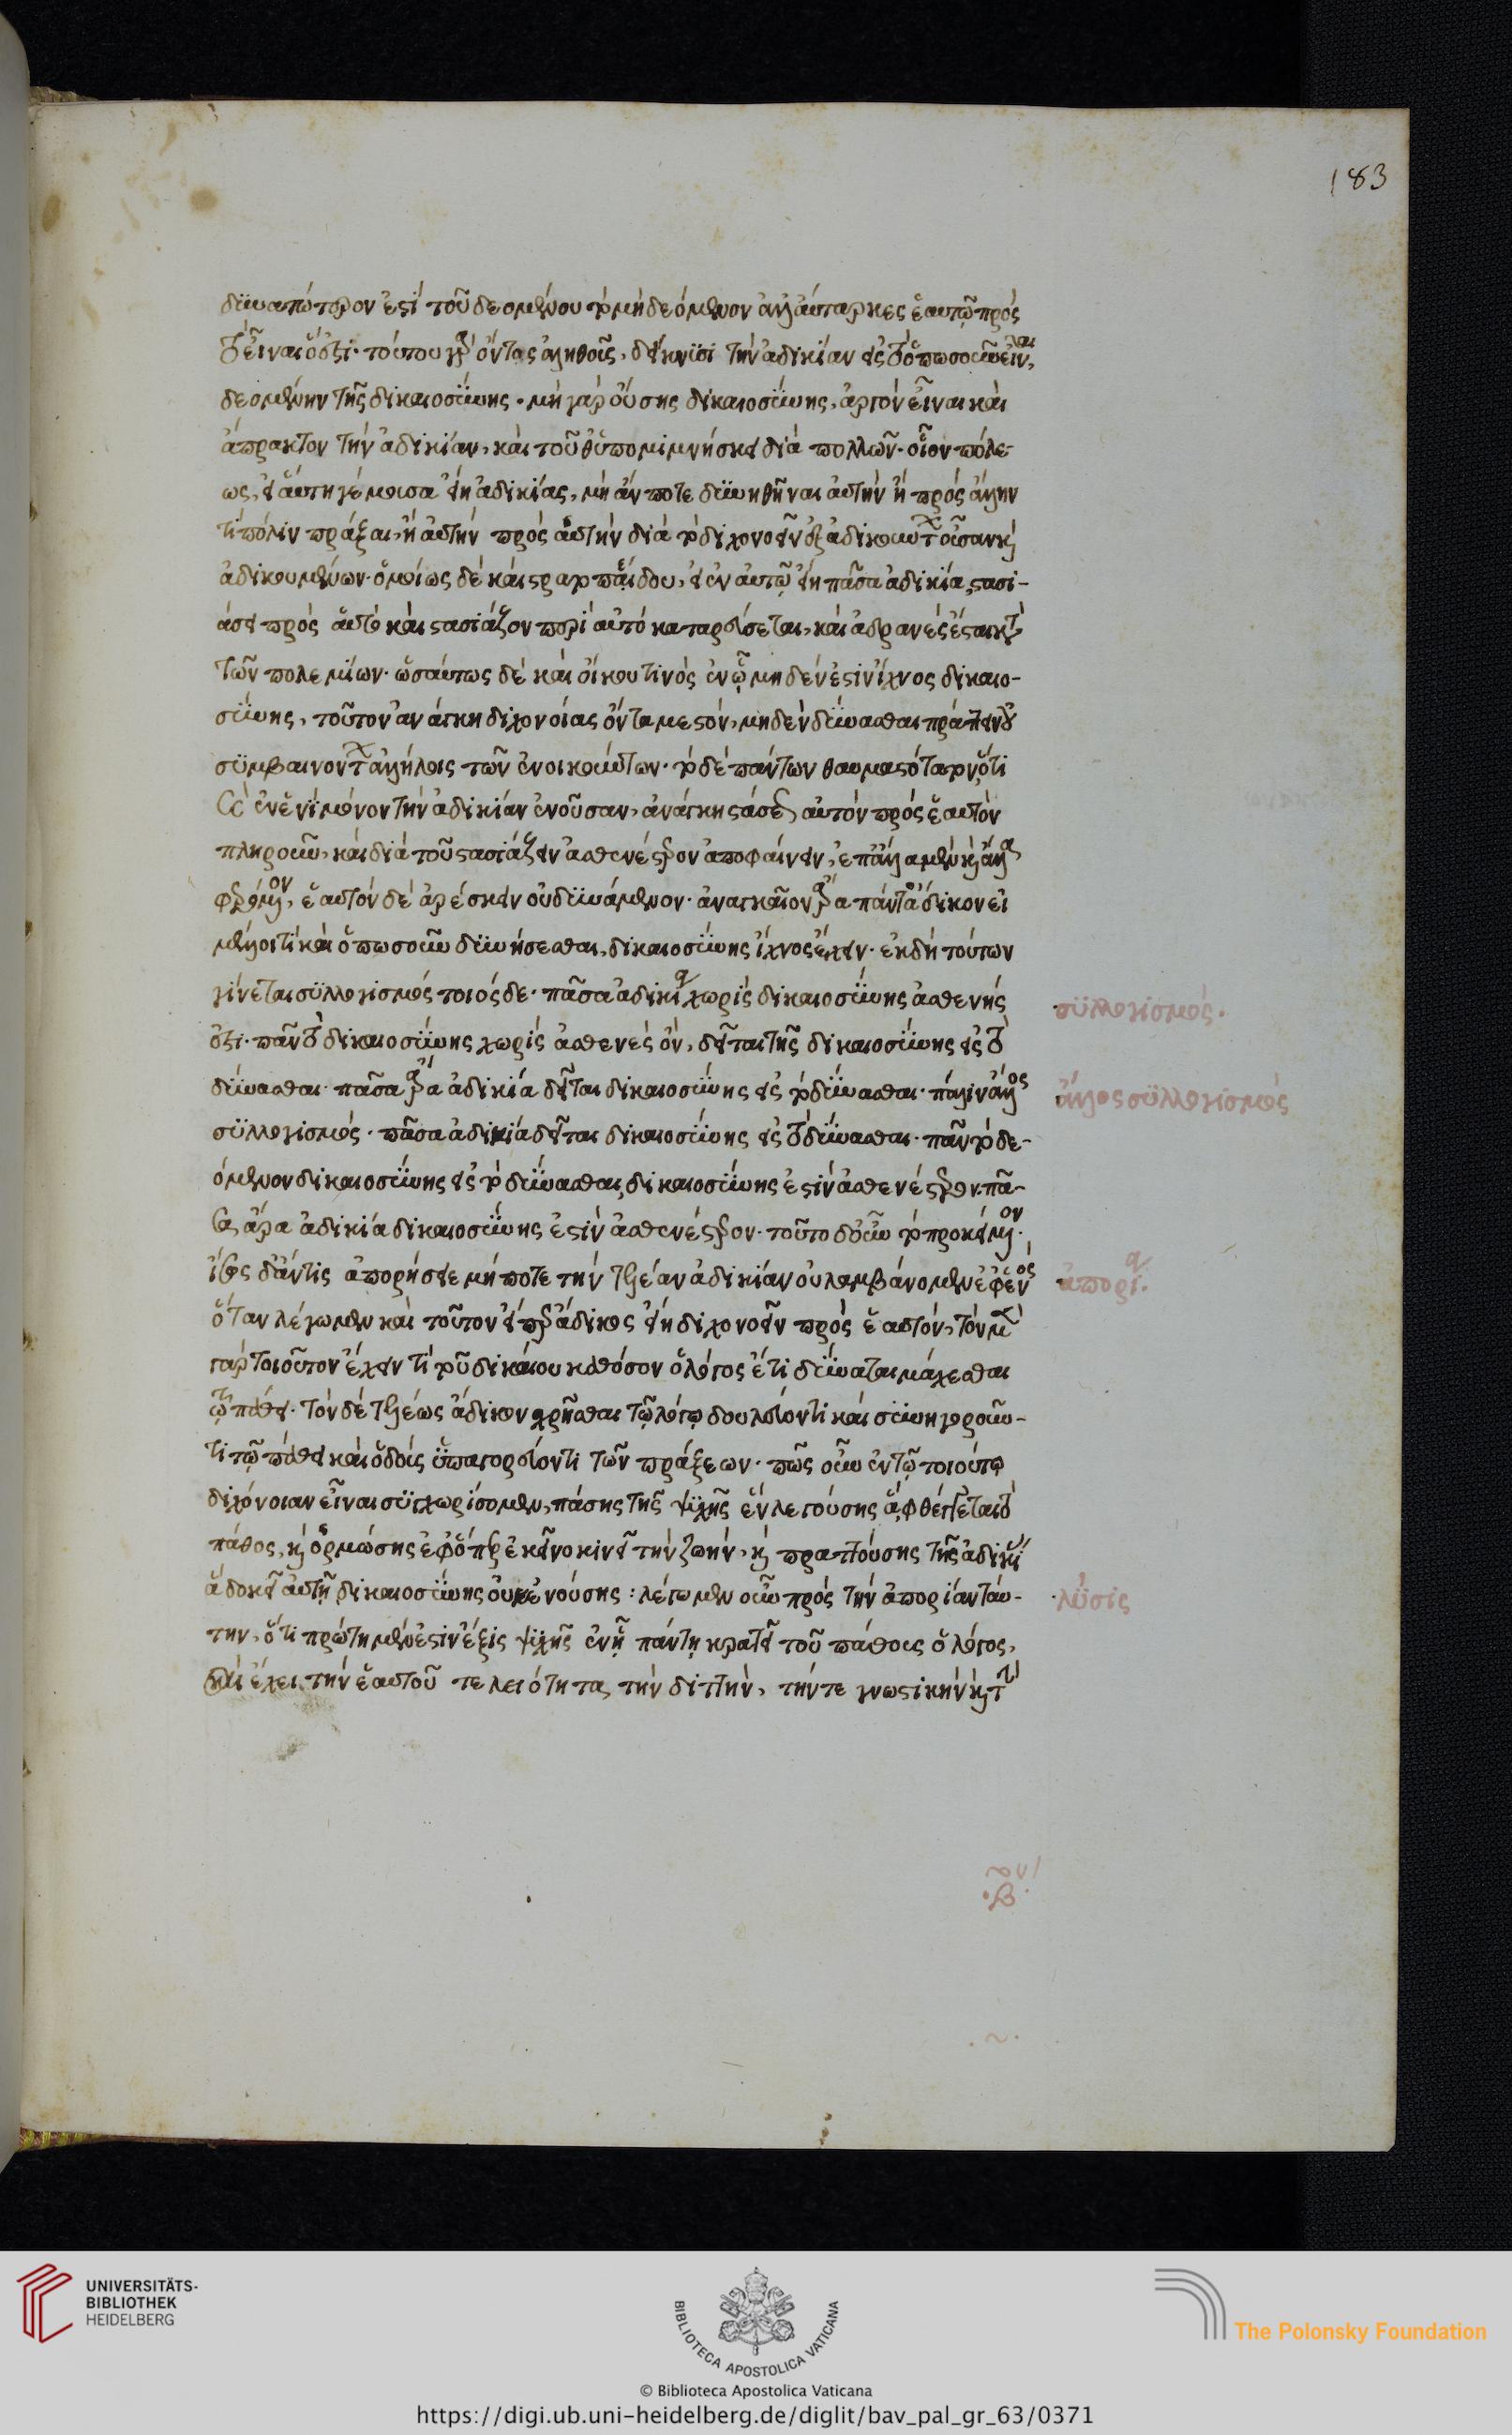 δυνατώτερον ἐστὶ τοῦ δεομένου τὸ μὴ δεόμενον ἀλλ' αὔταρκες ἑαυτῷ πρὸς
τὸ εἶναι ὅ ἐστι· τούτου γὰρ ὄντος ἀληθοῦς, δείκνυσι τὴν ἀδικίαν εἰς τὸ ὁπωσοῦν εἶναι,
δεομένην τῆς δικαιοσύνης· μὴ γὰρ οὔσης δικαιοσύνης, ἀργὸν εἶναι καὶ
ἄπρακτον τὴν ἀδικίαν, καὶ τοῦθ' ὑπομιμνήσκει διὰ πολλῶν· οἷον πόλε
ως, εἰ αὕτη γέμουσα εἴη ἀδικίας, μὴ ἄν ποτε δυνηθῆναι αὐτὴν ἢ πρὸς ἄλλην
τι πόλιν πρᾶξαι, ἢ αὐτὴν πρὸς αὑτὴν διὰ τὸ διχονοεῖν ἐξ ἀδικούντων οὖσαν καὶ
ἀδικουμένων· ὁμοίως δὲ καὶ εἰ ἐν αὐτῷ εἴη πᾶσα ἀδικία, στασι-
άσει πρὸς αὑτὸ καὶ στασιάζον περὶ αὑτὸ καταρεύσεται, καὶ ἀδρανὲς ἔσται κατὰ
τῶν πολεμίων· ὡσαύτως δὲ καὶ οἴκου τινὸς ἐν ᾧ μηδέν ἐστιν ἴχνος δικαιο-
σύνης, τοῦτον ἀνάγκη διχονοίας ὄντα μεστὸν, μηδὲν δύνασθαι πράττειν οὐ
συμβαινόντων ἀλλήλοις τῶν ἐνοικούντων· τὸ δὲ πάντων θαυμαστότατον, ὅτι
καὶ ἐν ἑνὶ μόνον τὴν ἀδικίαν ἐνοῦσαν, ἀνάγκη στάσεως αὐτὸν πρὸς ἑαυτὸν
πληροῦν, καὶ διὰ τοῦ στασιάζειν ἀσθενέστερον ἀποφαίνειν, ἐπ' ἄλλα μὲν καὶ ἄλλα
φερόμενον, ἑαυτὸν δὲ ἀρέσκειν οὐ δυνάμενον· ἀναγκαῖον ἄρα πάντα ἄδικον εἰ
μέλλοι τι καὶ ὁπωσοῦν δυνήσεσθαι, δικαιοσύνης ἴχνος ἔχειν· ἐκ δὴ τούτων
γίνεται συλλογισμὸς τοιόσδε· πᾶσα ἀδικία χωρὶς δικαιοσύνης ἀσθενής
ἐστι· πᾶν τὸ δικαιοσύνης χωρὶς ἀσθενὲς ὂν, δεῖται τῆς δικαιοσύνης εἰς τὸ
δύνασθαι· πᾶσα ἄρα ἀδικία δεῖται δικαιοσύνης εἰς τὸ δύνασθαι· πάλιν ἄλλος
συλλογισμός· πᾶσα ἀδικία δεῖται δικαιοσύνης εἰς τὸ δύνασθαι· πᾶν τὸ δε-
όμενον δικαιοσύνης εἰς τὸ δύνασθαι, δικαιοσύνης ἐστὶν ἀσθενέστερον· πᾶ-
σα ἄρα ἀδικία δικαιοσύνης ἐστὶν ἀσθενέστερον· τοῦτο δ' οὖν τὸ προκείμενον·
ἴσως δ' ἄν τις ἀπορήσειε μή ποτε τὴν τελέαν ἀδικίαν οὐ λαμβάνομεν ἐφ' ἑνὸς
ὅταν λέγωμεν καὶ τοῦτον εἴπερ ἄδικος εἴη διχονοεῖν πρὸς ἑαυτόν, τὸν μὲν
γὰρ τοιοῦτον ἔχειν τι τοῦ δικαίου καθόσον ὁ λόγος ἔτι δύναται μάχεσθαι
τῷ πάθει· τὸν δὲ τελέως ἄδικον χρῆσθαι τῷ λόγῳ δουλεύοντι καὶ συνηγοροῦν-
τι τῷ πάθει καὶ ὁδοὺς ὑπαγορεύοντι τῶν πράξεων· πῶς οὖν ἐν τῷ τοιούτῳ
διχόνοιαν εἶναι συγχωρήσομεν, πάσης τῆς ψυχῆς ἓν λεγούσης ἃ φθέγγεται τὸ
πάθος, καὶ ὁρμώσης ἐφ' ὅπερ ἐκεῖνο κινεῖ τὴν ζωήν, καὶ πραττούσης τῆς ἀδικίας
ἃ δοκεῖ αὐτῇ δικαιοσύνης οὐκ ἐνούσης : λέγωμεν οὖν πρὸς τὴν ἀπορίαν ταύ-
την, ὅτι πρώτη μέν ἐστιν ἕξις ψυχῆς ἐν ᾗ πάντῃ κρατεῖ τοῦ πάθους ὁ λόγος,
καὶ ἔχει τὴν ἑαυτοῦ τελειότητα, τὴν διττὴν, τήν τε γνωστικὴν καὶ τὴν
183
συλλογισμός.
ἄλλος συλλογισμὸς
ἀπορία.
λύσις
UNIVERSITÄTS-
BIBLIOTHEK
HEIDELBERG
BIBLIOTECA APOSTOLICA VATICANA
The Polonsky Foundation
© Biblioteca Apostolica Vaticana
https://digi.ub.uni-heidelberg.de/diglit/bav_pal_gr_63/0371